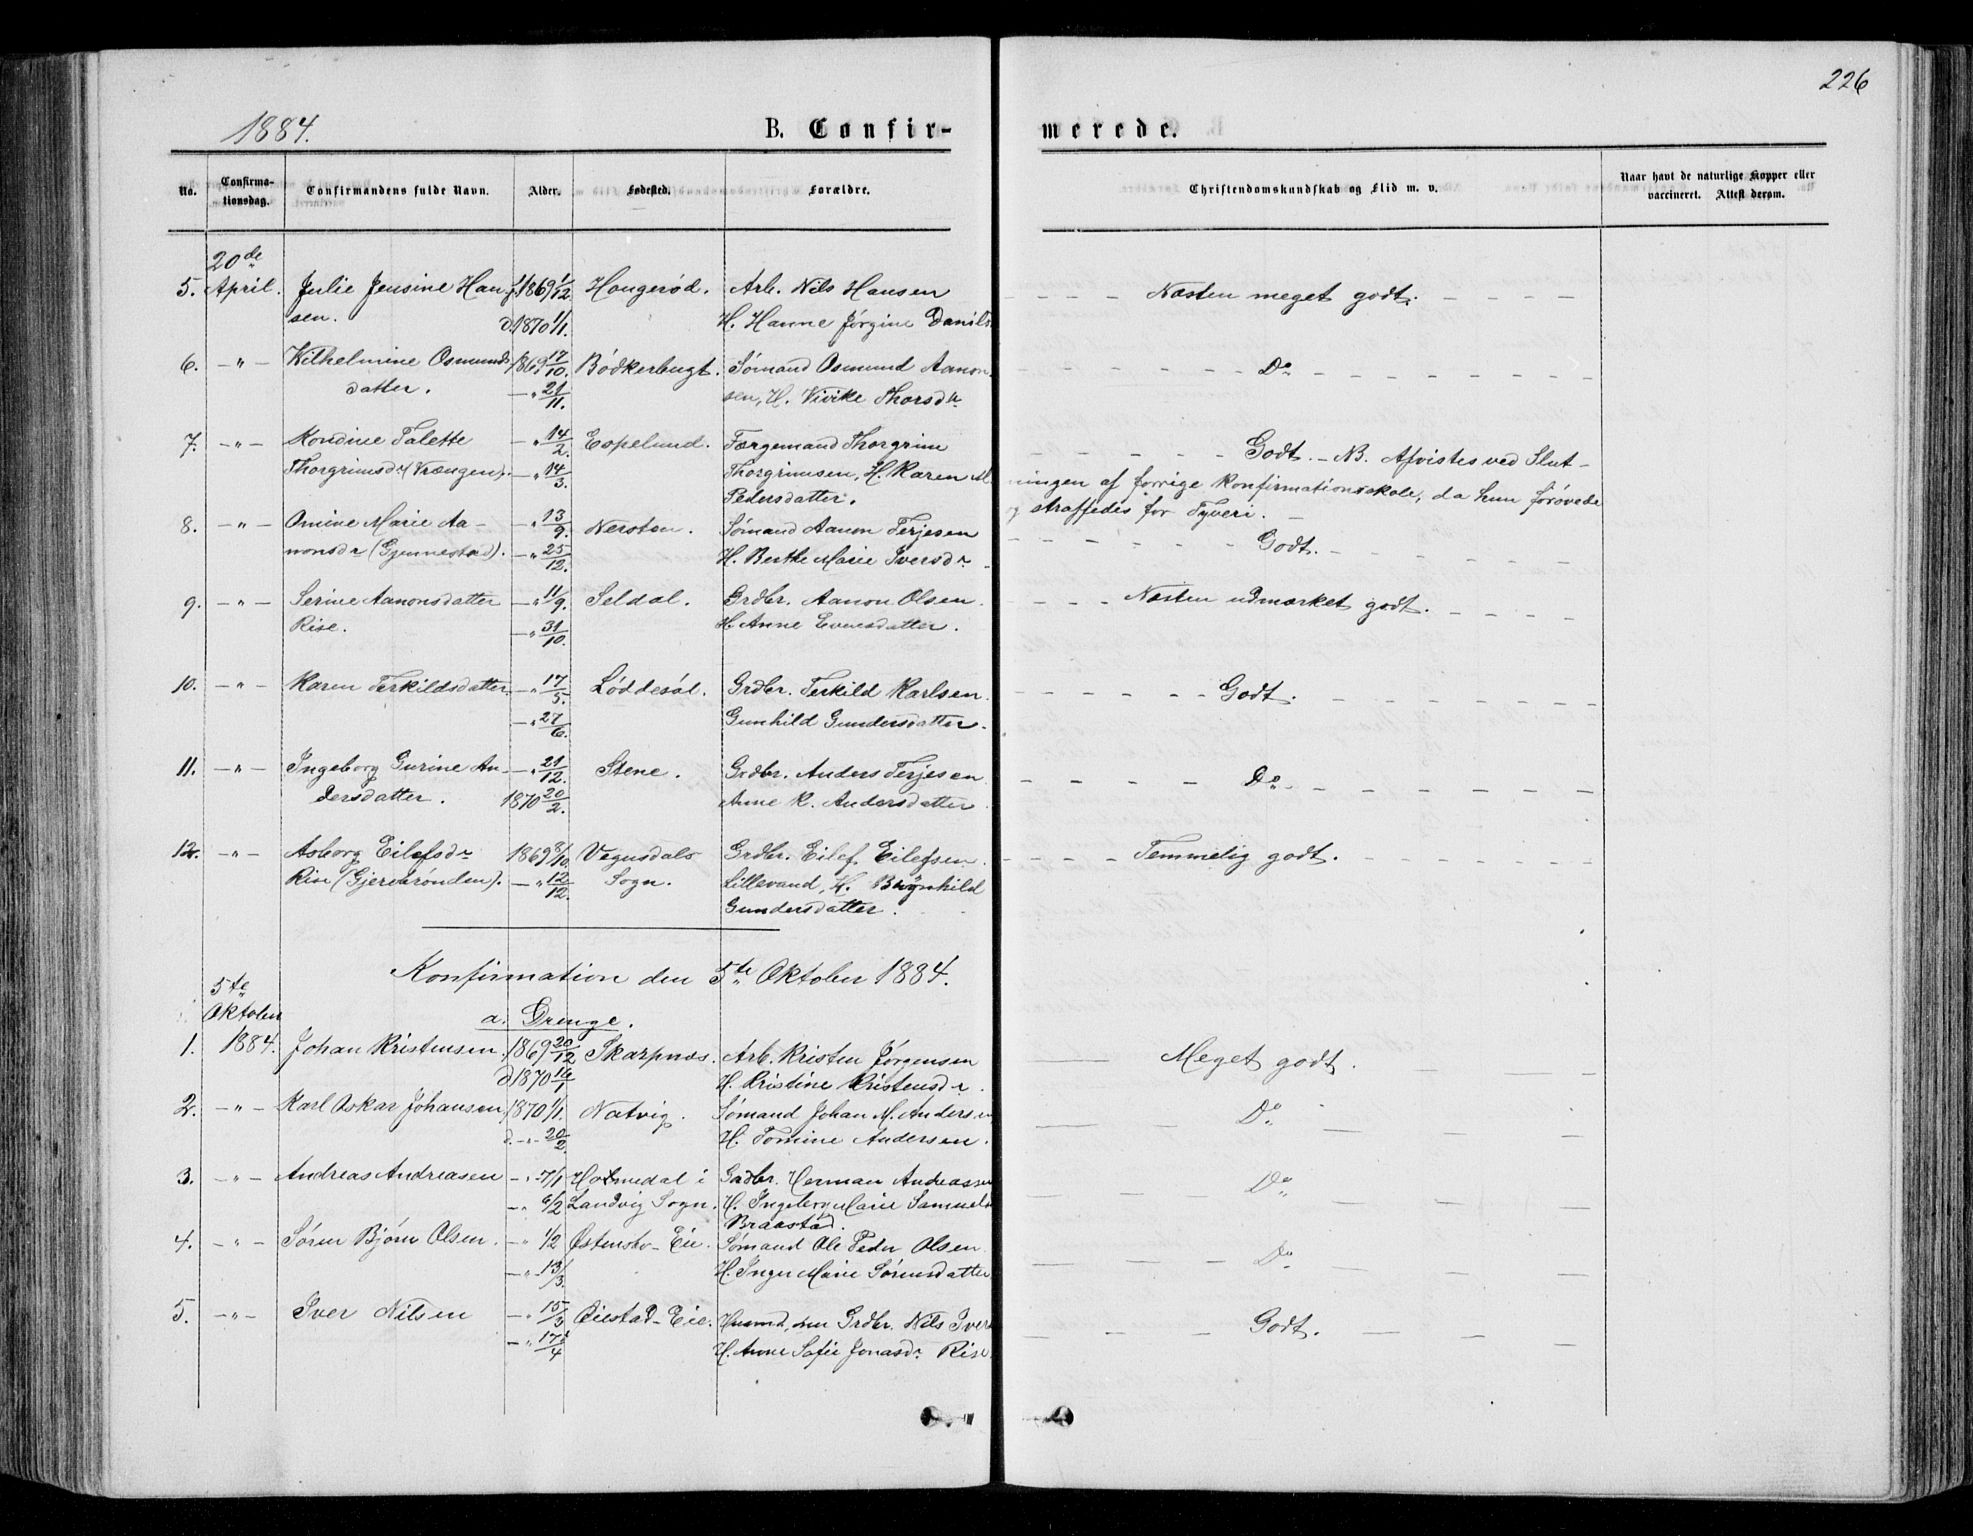 226
1884.
B. Confir-
merede.
No.
Confirma-
tionsdag.
Confirmandens fulde Navn.
Alder.
Fødested.
Forældre.
Christendomskundskab og Flid m. v.
Naar havt de naturlige Kopper eller
vaccineret. Attest derom.
20de
5. April. Julie Jensine Han- f. 1869 1/12 Haugerød. Arb. Nils Hansen Næsten meget godt.
sen. d. 1870 1/1. H. Hanne Jørgine Daniels
6. -"- Wilhelmine Osmunds 1869 17/10. Bødkerbugt. Sømand Osmund Aanon Do
datter. -"- 21/11. sen, H. Vivike Thorsdr
7. -"- Kondine Talette -"- 14/2. Espelund. Færgemand Thorgrim Godt. - NB. Afvistes ved Slut-
Thorgrimsdr (Vrængen). -"- 14/3. Thorgrimsen, H. Karen M. ningen af forrige Konfirmationsskole, da hun forøvede
Pedersdatter. og straffedes for Tyveri.
8. -"- Omine Marie Aa- -"- 13/9. Nersten. Sømand Aanon Terjesen
nonsdr (Gjennestad). -"- 25/12. H. Berthe Marie Iversdr Godt.
9. -"- Serine Aanonsdatter -"- 11/9. Seldal. Grdbr. Aanon Olsen. Næsten udmærket godt.
Rise. -"- 31/10. H. Anne Evensdatter.
10. -"- Karen Terkildsdatter -"- 17/5. Løddesøl. Grdbr. Terkild Karlsen Godt.
-"- 27/6. Gunhild Gundersdatter.
11. -"- Ingeborg Gurine An- -"- 21/12. Stene. Grdbr. Anders Terjesen Do
dersdatter. 1870 20/2. Anne K. Andersdatter
12. -"- Asborg Eilefsdr 1869 8/10. Vegusdals Grdbr. Eilef Eilefsen Temmelig godt.
Rise (Gjerebrønden). -"- 12/12. Sogn. Lillevand, H. Brynhild
Gundersdatter.
Konfirmation den 5te Oktober 1884.
5te
Oktober
a. Drenge.
1. 1884. Johan Kristensen. 1869 20/12 Skarpnæs. Arb. Kristen Jørgensen Meget godt.
d. 1870 16/1 H. Kristine Kristensdr.
2. -"- Karl Oskar Johansen 1870 1/1. Natvig. Sømand Johan M. Andersen Do
d. -"- 20/2. H. Tomine Andersen.
3. -"- Andreas Andreasen -"- 7/1 Holmedal i Gadbr. Herman Andreassen Do
-"- 6/2 Landvig Sogn. H. Ingeborg Marie Samuelsdr
Braastad.
4. -"- Søren Bjørn Olsen. -"- 1/2 Østensbo-Eie. Sømand Ole Peder Olsen Do
-"- 13/3. H. Inger Marie Sørensdatter
5. -"- Iver Nilsen -"- 15/3 Øiestad-Eie. Husmd, den Grdbr. Nils Ivers Godt.
-"- 17/4 H. Anne Sofie Jonasdr Rise.